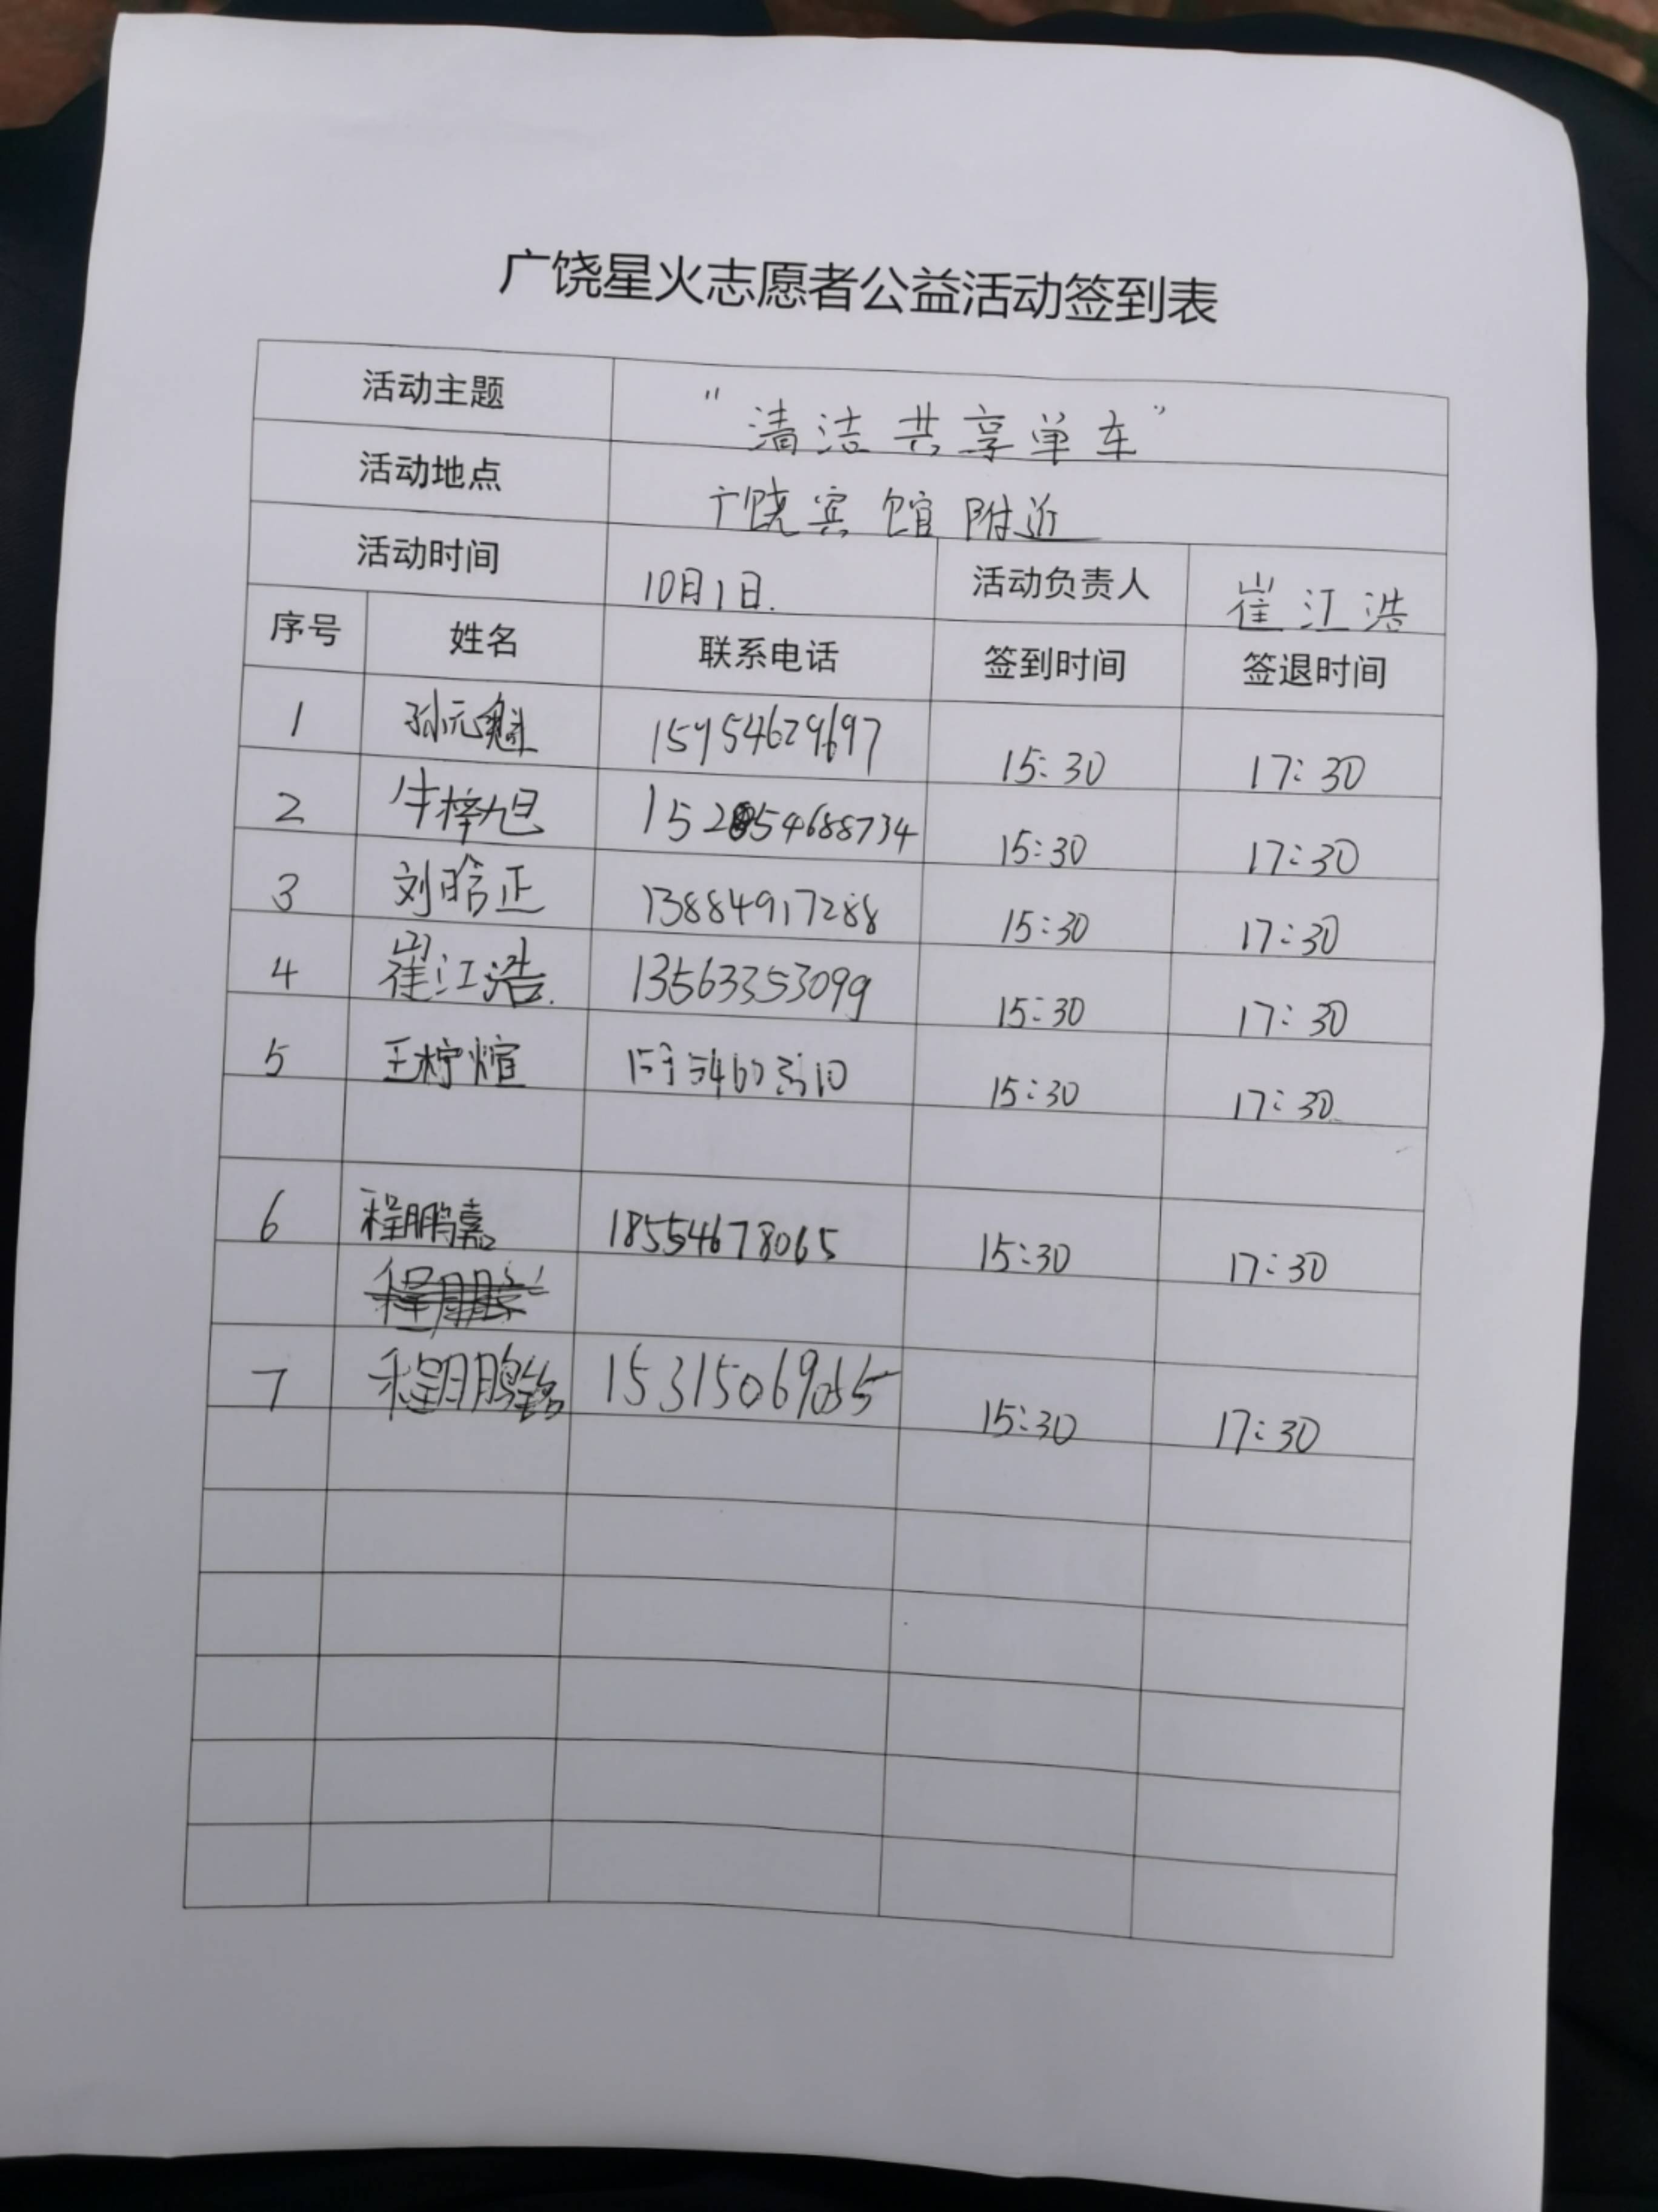 广饶星火志愿者公益活动签到表
活动主题 "清洁共享单车"
活动地点 广饶宾馆附近
活动时间 10月1日. 活动负责人 崔江浩
序号 姓名 联系电话 签到时间 签退时间
1 孙元魁 15954629697 15:30 17:30
2 牛梓旭 15254688734 15:30 17:30
3 刘晗正 13884917288 15:30 17:30
4 崔江浩. 13563353099 15:30 17:30
5 王柠煊 15:30 17:30
6 程鹏嘉 18554678065 15:30 17:30
7 程鹏铭 15315069065 15:30 17:30